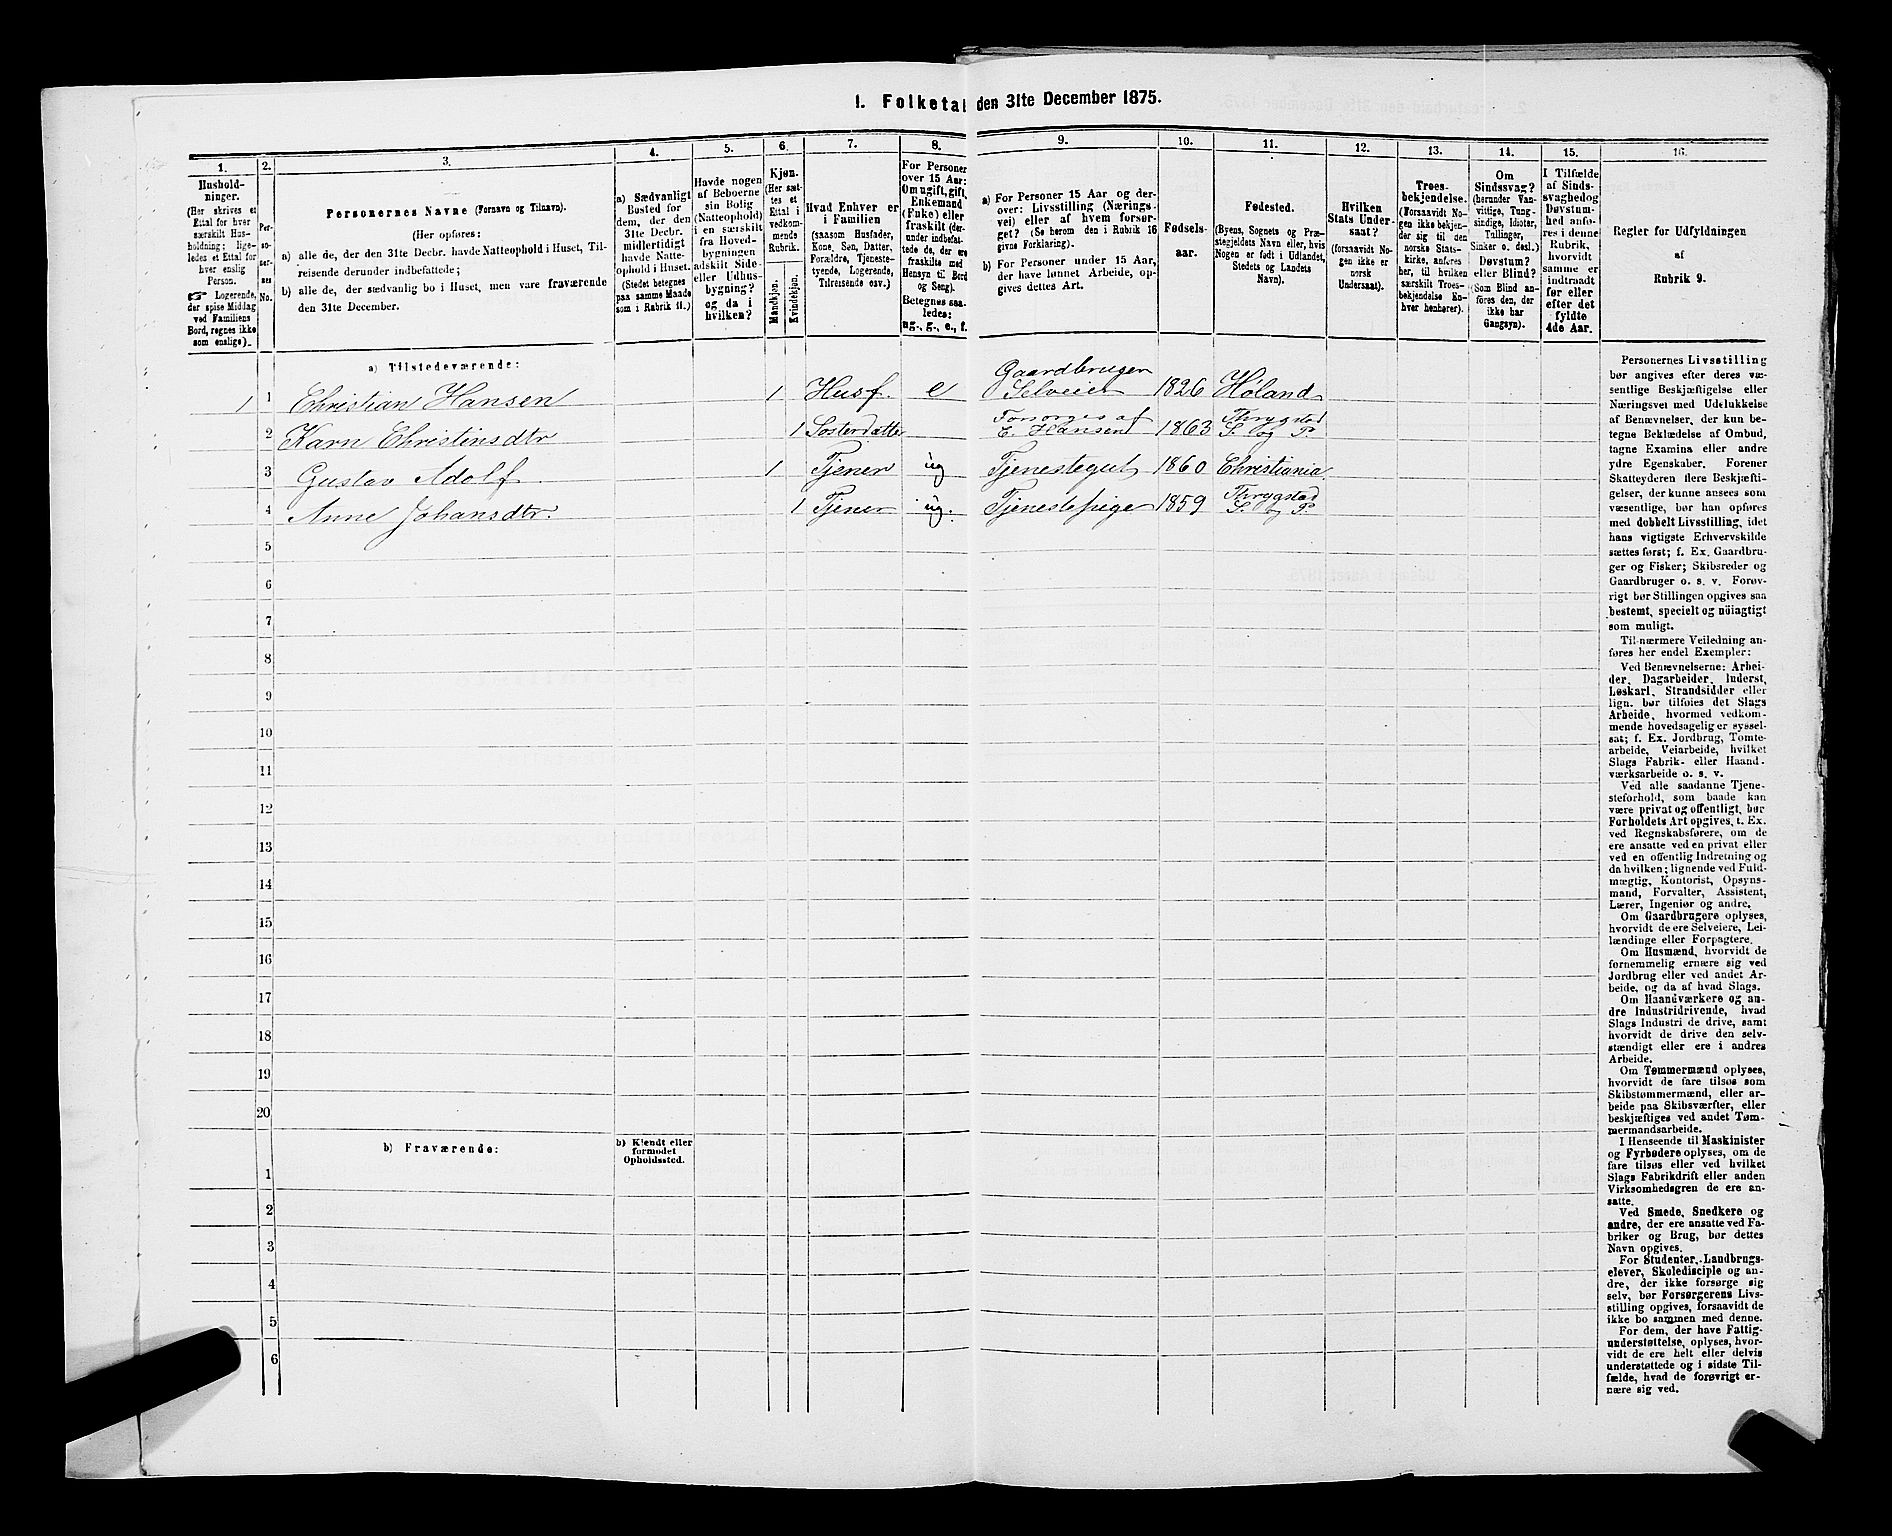 1. Folketal den 31te December 1875.
1. 2. 3. 4. 5. 6. 7. 8. 9. 10. 11. 12. 13. 14. 15. 16.
Husholdninger.
(Her skrives et
Ettal for hver
særskilt Husholdning;
ligeledes et Ettal for
hver enslig
Person.
☞ Logerende,
der spise Middag
ved Familiens
Bord, regnes ikke
som enslige).
Personernes No.
Personernes Navne (Fornavn og Tilnavn).
(Her opføres:
a) alle de, der den 31te Decbr. havde Natteophold i Huset, Tilreisende
derunder indbefattede;
b) alle de, der sædvanlig bo i Huset, men vare fraværende
den 31te December.
a) Sædvanligt
Bosted for
dem, der den
31te Decbr.
midlertidigt
havde Natteophold
i Huset.
(Stedet betegnes
paa samme Maade
som i Rubrik 11.)
Havde nogen
af Beboerne
sin Bolig
(Natteophold)
i en særskilt
fra Hovedbygningen
adskilt Side-
eller Udhusbygning?
og da i
hvilken?
Kjøn.
(Her sættes
et
Ettal i
vedkommende
Rubrik.
Mandkjøn.
Kvindekjøn.
Hvad Enhver er
i Familien
(saasom Husfader,
Kone, Søn, Datter,
Forældre, Tjenestetyende,
Logerende,
Tilreisende osv.)
For Personer
over 15 Aar:
Om ugift, gift,
Enkemand
(Enke) eller
fraskilt (derunder
indbefattede
de, der ere
fraskilte med
Hensyn til Bord
og Seng).
Betegnes saaledes:
ug., g., e., f.
a) For Personer 15 Aar og derover:
Livsstilling (Næringsvei)
eller af hvem forsørget?
(Se herom den i Rubrik 16
givne Forklaring).
b) For Personer under 15 Aar,
der have lønnet Arbeide, opgives
dettes Art.
Fødselsaar.
Fødested.
(Byens, Sognets og Præstegjeldets
Navn eller, hvis
Nogen er født i Udlandet,
Stedets og Landets
Navn).
Hvilken
Stats Undersaat?
(forsaavidt Nogen
ikke er
norsk
Undersaat).
Troesbekjendelse.
(Forsaavidt Nogen
ikke bekjender
sig til den
norske Statskirke,
anføres
her, til hvilken
særskilt Troesbekjendelse
Enhver
henhører).
Om
Sindssvag?
(herunder Vanvittige,
Tungsindige,
Idioter,
Tullinger,
Sinker o. desl.)
Døvstum?
eller Blind?
(Som Blind anføres
den, der
ikke har
Gangsyn).
I Tilfælde
af Sindssvaghed
og
Døvstumhed
anføres
i denne
Rubrik,
hvorvidt
samme er
indtraadt
før eller
efter det
fyldte
4de Aar.
Regler for Udfyldningen
af
Rubrik 9.
a) Tilstedeværende:
1 1 Christian Hansen 1 Husf. e Gaardbruger
Selveier 1826 Høland
2 Karn Christinsdtr 1 Søsterdatter Forsørges af
C. Hansen 1863 Thrygstad
S. og P.
3 Gustav Adolf 1 Tjener ug Tjenestegut 1860 Christiania
4 Anne Johansdtr. 1 Tjener ug. Tjenestepige 1859 Thrygstad
S. og P.
5
6
7
8
9
10
11
12
13
14
15
16
17
18
19
20
b) Fraværende:
b) Kjendt eller
formodet
Opholdssted.
1
2
3
4
5
6
Personernes Livsstilling
bør angives efter deres væsentlige
Beskjæftigelse eller
Næringsvei med Udelukkelse
af Benævnelser, der kun betegne
Beklædelse af Ombud,
tagne Examina eller andre
ydre Egenskaber. Forener
Skatteyderen flere Beskjæftigelser,
der kunne ansees som
væsentlige, bør han opføres
med dobbelt Livsstilling, idet
hans vigtigste Erhvervskilde
sættes først; f. Ex. Gaardbruger
og Fisker; Skibsreder og
Gaardbruger o. s. v. Forøvrigt
bør Stillingen opgives saa
bestemt, specielt og nøiagtigt
som muligt.
Til nærmere Veiledning anføres
her endel Exempler:
Ved Benævnelserne: Arbeider,
Dagarbeider, Inderst,
Løskarl, Strandsidder eller
lign. bør tilføies det Slags
Arbeide, hvormed vedkommende
hovedsagelig er sysselsat;
f. Ex. Jordbrug, Tomtearbeide,
Veiarbeide, hvilket
Slags Fabrik- eller Haandværksarbeide
o. s. v.
Ved alle saadanne Tjenesteforhold,
som baade kan
være privat og offentligt, bør
Forholdets Art opgives, t. Ex.
ved Regnskabsførere, om de
ere ansatte ved en privat eller
ved en offentlig Indretning og
da hvilken; lignende ved Fuldmægtig,
Kontorist, Opsynsmand,
Forvalter, Assistent,
Lærer, Ingeniør og andre.
Om Gaardbrugere oplyses,
hvorvidt de ere Selveiere, Leilændinge
eller Forpagtere.
Om Husmænd, hvorvidt de
fornemmelig ernære sig ved
Jordbrug eller ved andet Arbeide,
og da af hvad Slags.
Om Haandværkere og andre
Industridrivende, hvad
Slags Industri de drive, samt
hvorvidt de drive den selvstændigt
eller ere i andres
Arbeide.
Om Tømmermænd oplyses,
hvorvidt de fare tilsøs som
Skibstømmermænd, eller arbeide
paa Skibsværfter, eller
beskjæftiges ved andet Tømmermandsarbeide.
I Henseende til Maskinister
og Fyrbødere oplyses, om de
fare tilsøs eller ved hvilket
Slags Fabrikdrift eller anden
Virksomhedsgren de ere ansatte.
Ved Smede, Snedkere og
andre, der ere ansatte ved Fabriker
og Brug, bør dettes
Navn opgives.
For Studenter, Landbrugselever,
Skoledisciple og andre,
der ikke forsørge sig
selv, bør Forsørgerens Livsstilling
opgives, forsaavidt de
ikke bo sammen med denne.
For dem, der have Fattigunderstøttelse,
oplyses, hvorvidt
de ere helt eller delvis
understøttede og i sidste Tilfælde,
hvad de forøvrigt ernære
sig ved.